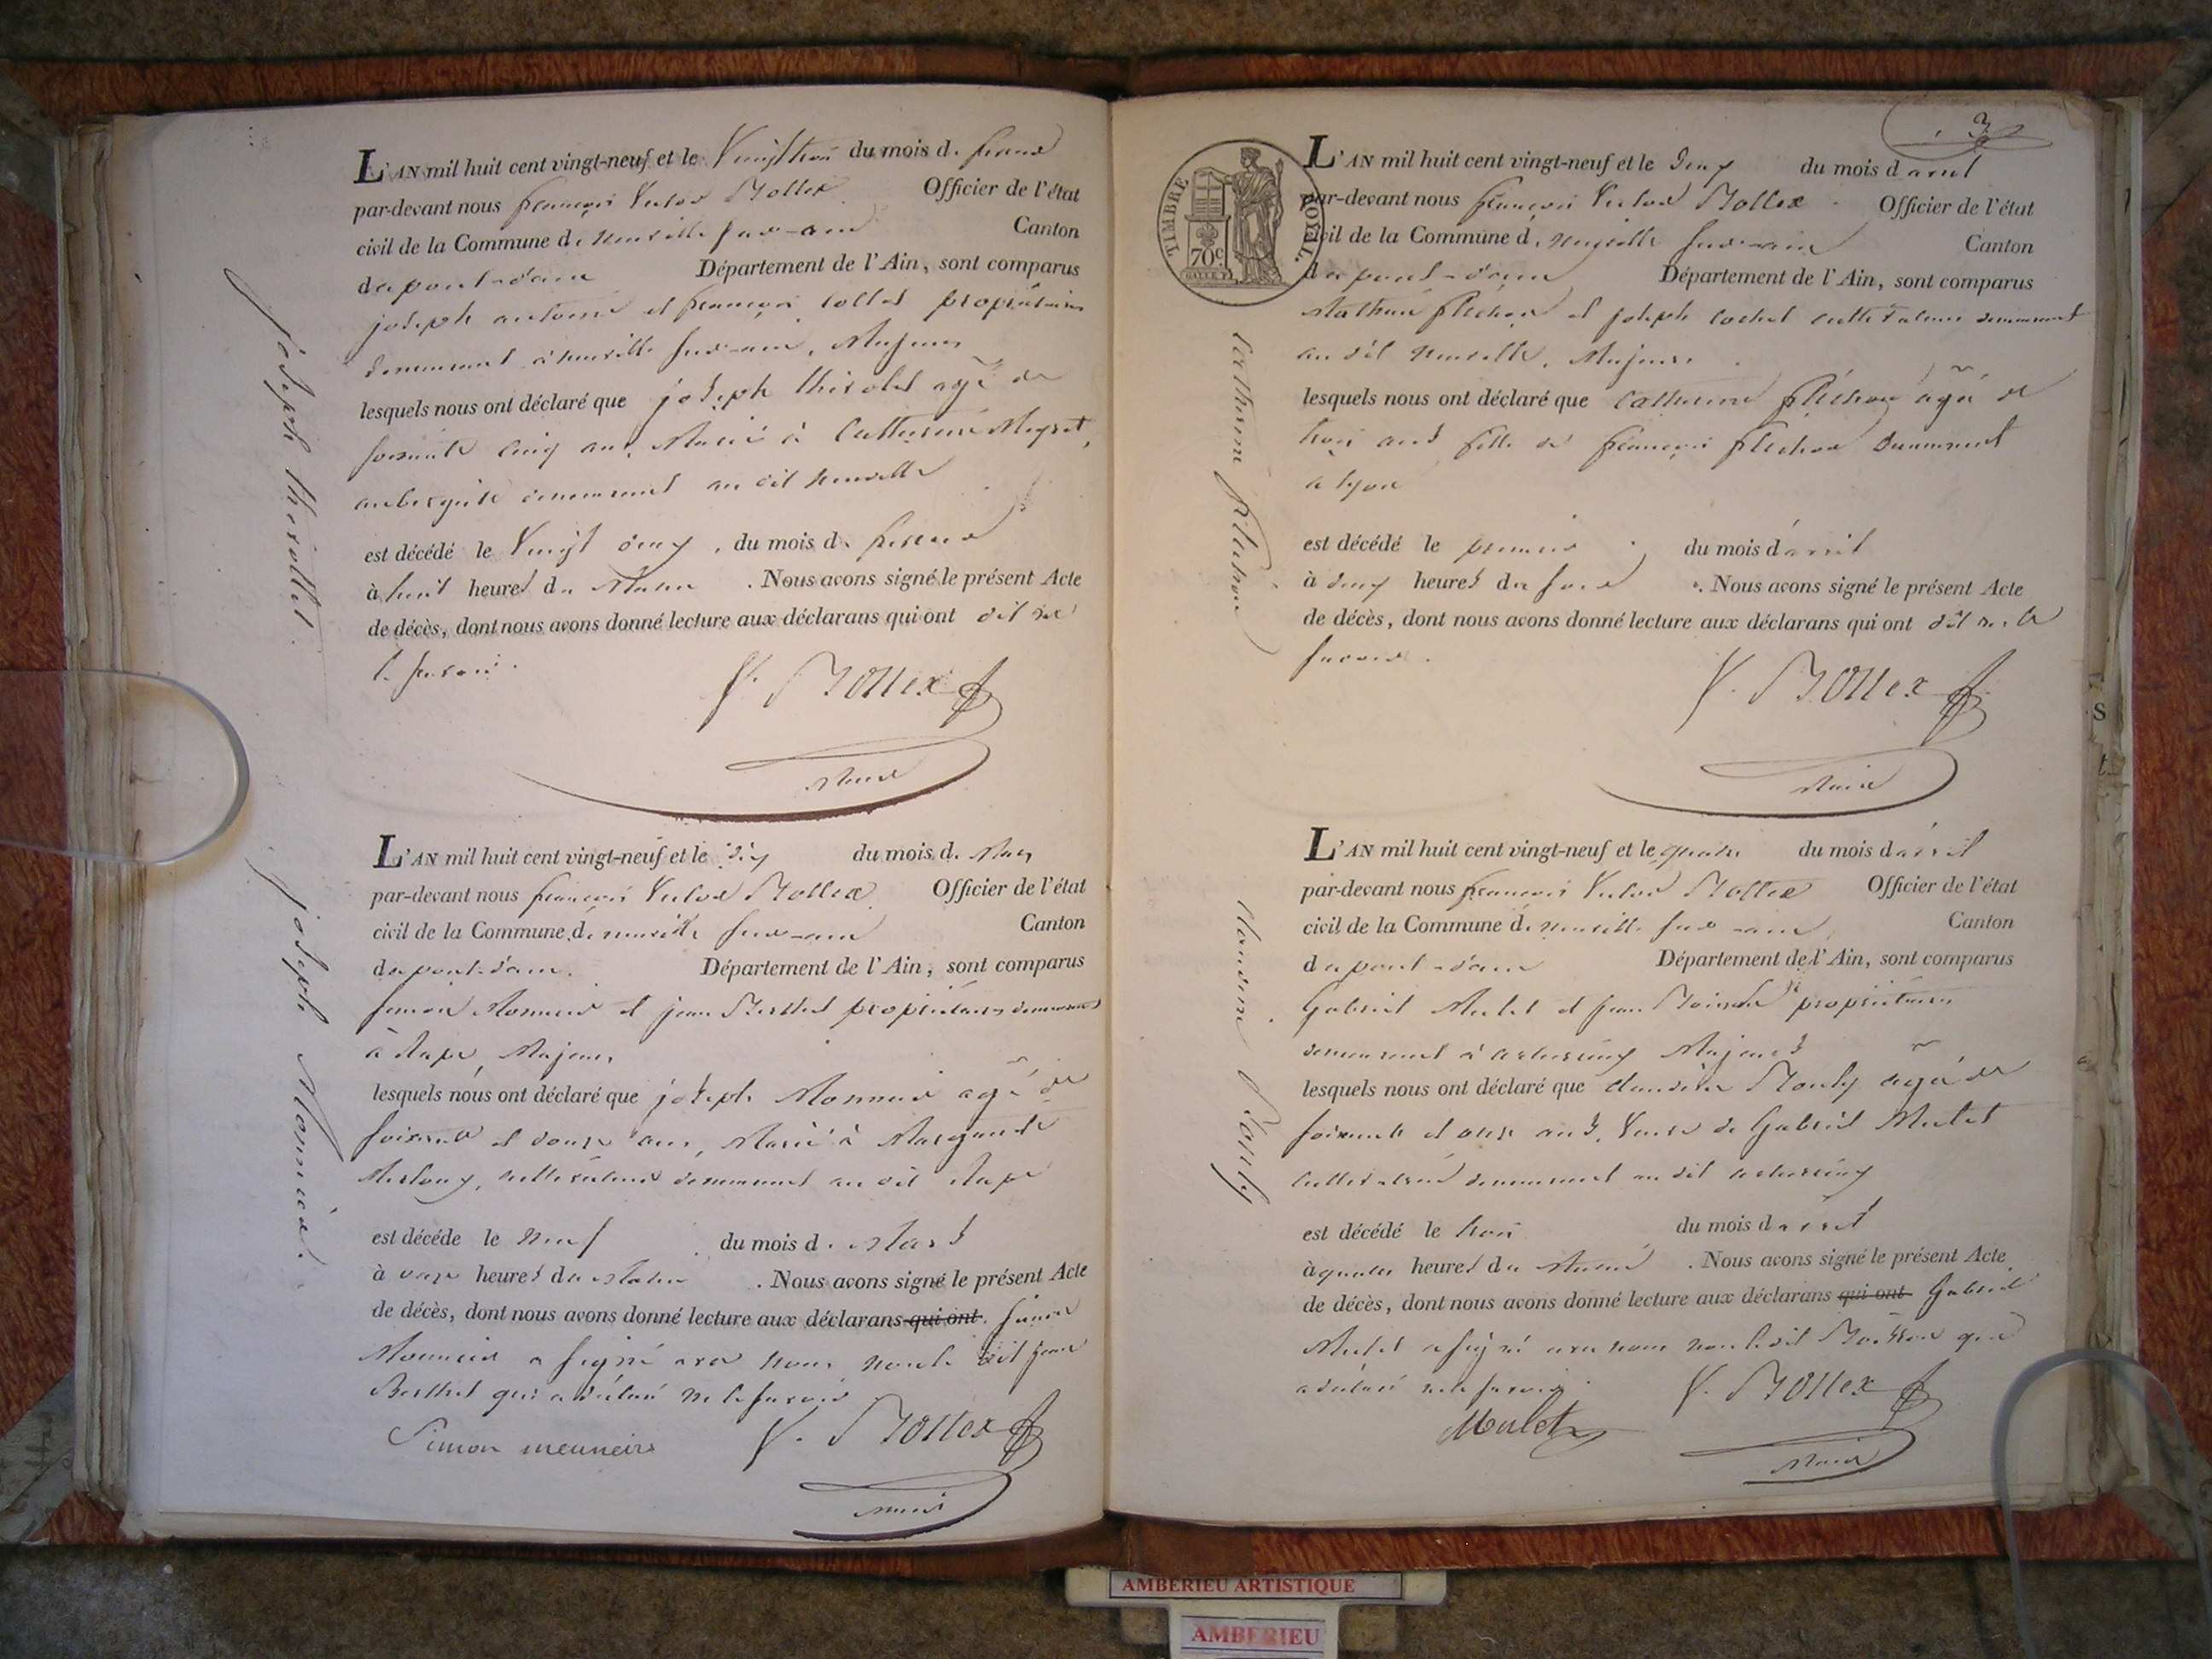 L'AN mil huit cent vingt-neuf et le Vingt trois du mois de
par-devant nous françois Victor Bottex Officier de l'état
civil de la Commune de neuville sur-ain Canton
de pont-d'ain Département de l'Ain, sont comparus
joseph antoine et françois collet propriétaires
demeurant à neuville sur-ain, Majeurs
lesquels nous ont déclaré que joseph thevolet agé de
soixante cinq ans, Marié à Catherine
aubergiste demeurant au dit neuville
est décédé le Vingt deux du mois de
à huit heures du Matin. Nous avons signé le présent Acte
de décès, dont nous avons donné lecture aux déclarans qui ont dit ne
le savoir.
V. Bottex
Maire
joseph
L'AN mil huit cent vingt-neuf et le dix du mois de Mars
par-devant nous françois Victor Bottex Officier de l'état
civil de la Commune de neuville sur-ain Canton
de pont-d'ain. Département de l'Ain, sont comparus
simon Monnier et jean Berthet propriétaires demeurant
à Majeurs
lesquels nous ont déclaré que joseph Monnier agé de
soixante et douze ans, Marié à Marguerite
cultivateur demeurant au dit
est décédé le neuf du mois de Mars
à onze heures du Matin. Nous avons signé le présent Acte
de décès, dont nous avons donné lecture aux déclarans qui ont simon
Monnier a signé avec nous non le dit jean
Berthet qui a déclaré ne le savoir
Simon meuneire V. Bottex
Maire
joseph Monnier
3
TIMBRE ROYAL.
70 c
L'AN mil huit cent vingt-neuf et le deux du mois d'avril
par-devant nous françois Victor Bottex Officier de l'état
civil de la Commune de neuville sur-ain Canton
de pont-d'ain Département de l'Ain, sont comparus
fléchon et joseph cochet cultivateurs demeurant
au dit neuville, Majeurs.
lesquels nous ont déclaré que catherine fléchon agée de
trois ans fille de françois fléchon demeurant
a lyon
est décédé le premier du mois d'avril
à deux heures du soir. Nous avons signé le présent Acte
de décès, dont nous avons donné lecture aux déclarans qui ont dit ne le
savoir.
V. Bottex
Maire
catherine fléchon
L'AN mil huit cent vingt-neuf et le quatre du mois d'avril
par-devant nous françois Victor Bottex Officier de l'état
civil de la Commune de neuville sur-ain Canton
de pont-d'ain Département de l'Ain, sont comparus
Gabriel Mulet et jean propriétaires
demeurant à Majeurs
lesquels nous ont déclaré que claudine agée de
soixante et onze ans, Veuve de Gabriel Mulet
cultivatrice demeurant au dit
est décédé le trois du mois d'avril
à quatre heures du Matin. Nous avons signé le présent Acte
de décès, dont nous avons donné lecture aux déclarans qui ont Gabriel
Mulet a signé avec nous non le dit qui
a déclaré ne le savoir. V. Bottex
Mulet
Maire
claudine
S
t
AMBERIEU ARTISTIQUE
AMBERIEU